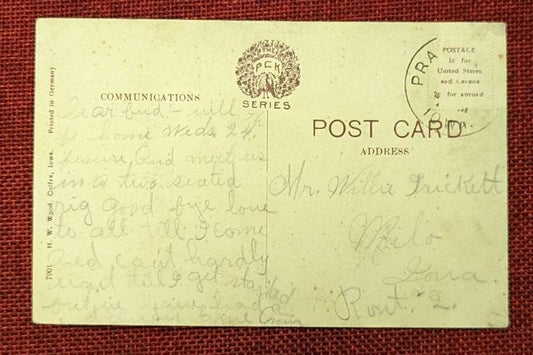 PCK
SERIES
COMMUNICATIONS
POST CARD
ADDRESS
POSTAGE
1c for
United States
and Canada
for abroad
PRA
7901 H. W. Wood, Iowa. Printed in Germany
Dear bud - will
be home Weds 24.
besure, and meet us
in a two seated
rig good bye love
to all till I come
and can't hardly
wait till I get started
Mr. Willie Trickett
Milo
Iowa.
Rout. 2.